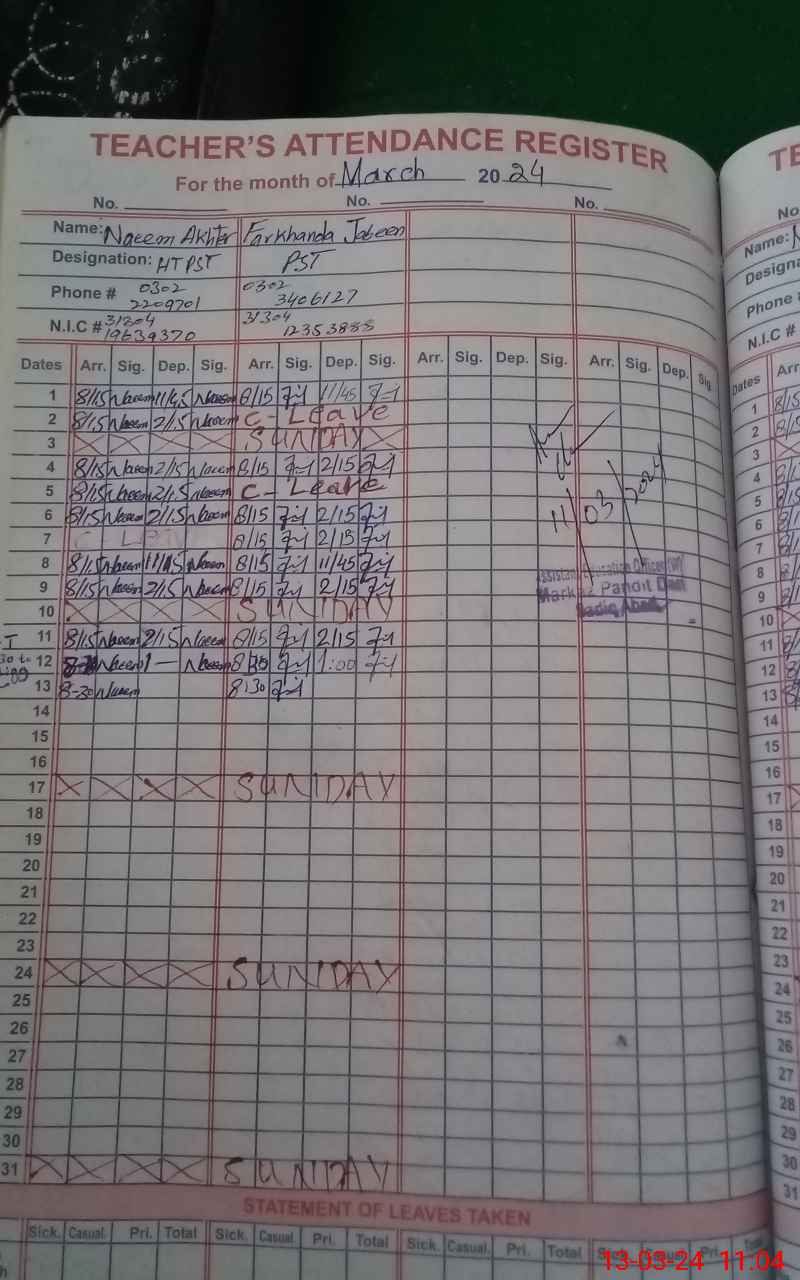 TEACHER'S ATTENDANCE REGISTER
For the month of March 2024
No. No. No.
Name: Naeem Akhter Farkhanda Jabeen
Designation: HTPST PST
Phone # 0302 2209701 0302 3406127
N.I.C # 31304 19639370 31304 12353888
Dates Arr. Sig. Dep. Sig. Arr. Sig. Dep. Sig. Arr. Sig. Dep. Sig. Arr. Sig. Dep. Sig.
1 8/15 Naeem 11/45 Naeem 8/15 11/45
2 8/15 Naeem 2/15 Naeem C-Leave
3 SUNDAY
4 8/15 Naeem 2/15 Naeem 8/15 2/15
5 8/15 Naeem 2/15 Naeem C-Leave
6 8/15 Naeem 2/15 Naeem 8/15 2/15
7 8/15 2/15
8 8/15 Naeem 11/45 Naeem 8/15 11/45
9 8/15 Naeem 2/15 Naeem 8/15 2/15
10 SUNDAY
11 8/15 Naeem 2/15 Naeem 8/15 2/15
12 Naeem 1 — Naeem 8:30 1:00
13 8-30 Naeem 8:30
14
15
16
17 SUNDAY
18
19
20
21
22
23
24 SUNDAY
25
26
27
28
29
30
31 SUNDAY
11/03/2024
Assistant Education Officer
Markaz Pandit
Sadiq Abad
STATEMENT OF LEAVES TAKEN
Sick. Casual. Pri. Total Sick. Casual. Pri. Total Sick. Casual. Pri. Total Sick. Casual. Pri. Total
TE
No.
Name:
Designa
Phone
N.I.C #
Dates Arr
1 8/15
2 8/15
3
4
5
6
7
8
9
10
11
12
13
14
15
16
17
18
19
20
21
22
23
24
25
26
27
28
29
30
31
13-03-24 11:04